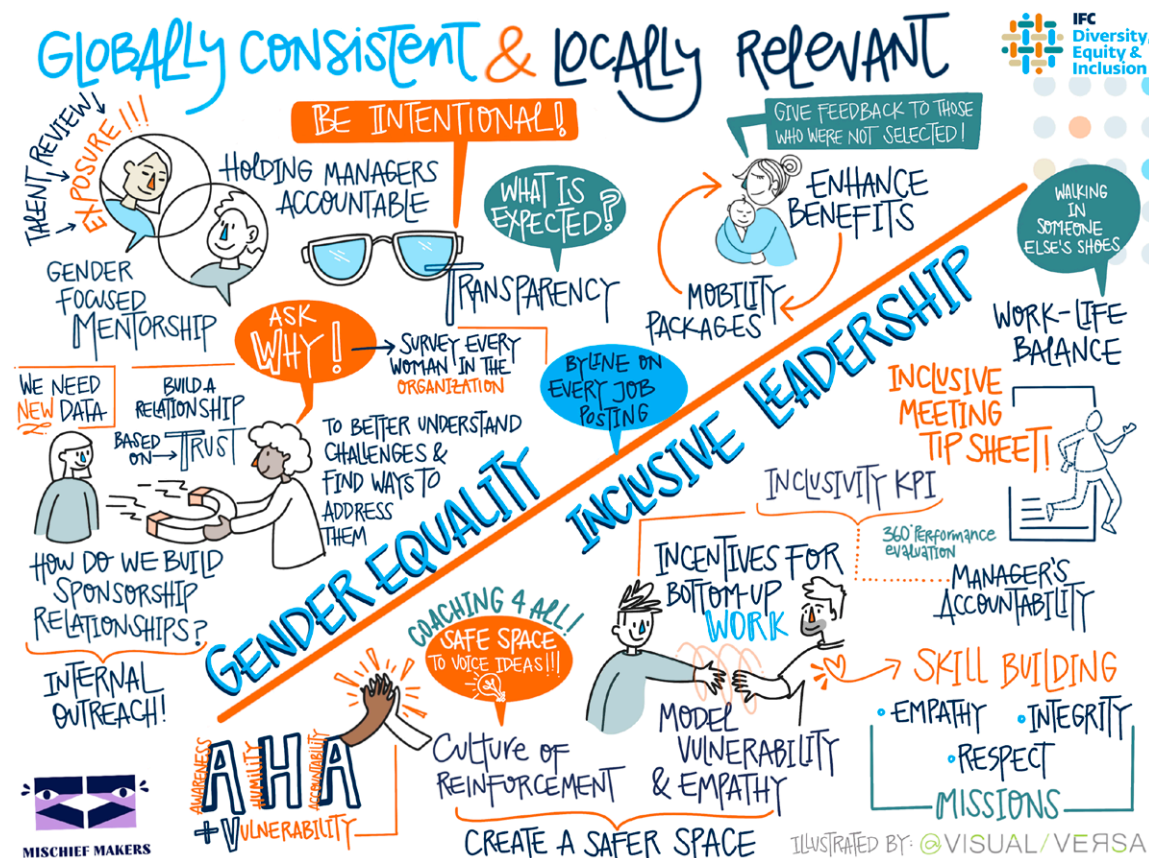 GLOBALLY CONSISTENT & LOCALLY RELEVANT
IFC
Diversity,
Equity &
Inclusion
TALENT REVIEW
EXPOSURE!!!
GENDER
FOCUSED
MENTORSHIP
HOLDING MANAGERS
ACCOUNTABLE
BE INTENTIONAL!
WHAT IS
EXPECTED?
TRANSPARENCY
GIVE FEEDBACK TO THOSE
WHO WERE NOT SELECTED!
ENHANCE
BENEFITS
MOBILITY
PACKAGES
WALKING
IN
SOMEONE
ELSE'S SHOES
WORK-LIFE
BALANCE
ASK
WHY!
SURVEY EVERY
WOMAN IN THE
ORGANIZATION
TO BETTER UNDERSTAND
CHALLENGES &
FIND WAYS TO
ADDRESS
THEM
WE NEED
NEW DATA
BUILD A
RELATIONSHIP
BASED
ON → TRUST
HOW DO WE BUILD
SPONSORSHIP
RELATIONSHIPS?
INTERNAL
OUTREACH!
BYLINE ON
EVERY JOB
POSTING
GENDER EQUALITY
INCLUSIVE LEADERSHIP
INCLUSIVE
MEETING
TIP SHEET!
INCLUSIVITY KPI
360° PERFORMANCE
evaluation
MANAGER'S
ACCOUNTABILITY
INCENTIVES FOR
BOTTOM-UP
WORK
COACHING 4 ALL!
SAFE SPACE
TO VOICE IDEAS!!!
CULTURE OF
REINFORCEMENT
MODEL
VULNERABILITY
& EMPATHY
CREATE A SAFER SPACE
SKILL BUILDING
• EMPATHY • INTEGRITY
• RESPECT
MISSIONS
AWARENESS
HUMILITY
ACCOUNTABILITY
AHA
+ VULNERABILITY
MISCHIEF MAKERS
ILLUSTRATED BY: @VISUAL/VERSA